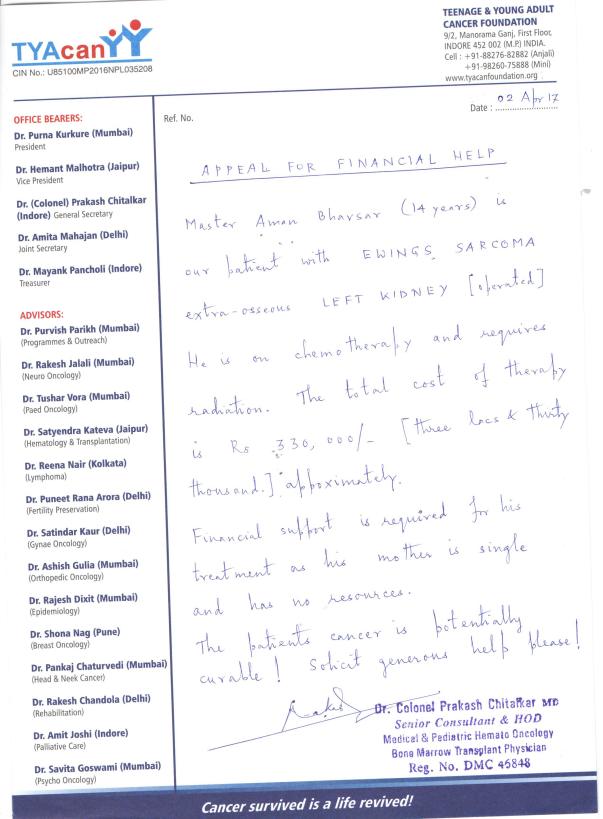 TYAcan
CIN No.: U85100MP2016NPL035208
TEENAGE & YOUNG ADULT
CANCER FOUNDATION
9/2, Manorama Ganj, First Floor,
INDORE 452 002 (M.P.) INDIA.
Cell : +91-88276-82882 (Anjali)
+91-98260-75888 (Mini)
www.tyacanfoundation.org
Ref. No.
Date : 02 Apr 17
OFFICE BEARERS:
Dr. Purna Kurkure (Mumbai)
President
Dr. Hemant Malhotra (Jaipur)
Vice President
Dr. (Colonel) Prakash Chitalkar
(Indore) General Secretary
Dr. Amita Mahajan (Delhi)
Joint Secretary
Dr. Mayank Pancholi (Indore)
Treasurer
ADVISORS:
Dr. Purvish Parikh (Mumbai)
(Programmes & Outreach)
Dr. Rakesh Jalali (Mumbai)
(Neuro Oncology)
Dr. Tushar Vora (Mumbai)
(Paed Oncology)
Dr. Satyendra Kateva (Jaipur)
(Hematology & Transplantation)
Dr. Reena Nair (Kolkata)
(Lymphoma)
Dr. Puneet Rana Arora (Delhi)
(Fertility Preservation)
Dr. Satindar Kaur (Delhi)
(Gynae Oncology)
Dr. Ashish Gulia (Mumbai)
(Orthopedic Oncology)
Dr. Rajesh Dixit (Mumbai)
(Epidemiology)
Dr. Shona Nag (Pune)
(Breast Oncology)
Dr. Pankaj Chaturvedi (Mumbai)
(Head & Neek Cancer)
Dr. Rakesh Chandola (Delhi)
(Rehabilitation)
Dr. Amit Joshi (Indore)
(Palliative Care)
Dr. Savita Goswami (Mumbai)
(Psycho Oncology)
APPEAL FOR FINANCIAL HELP
Master Aman Bhavsar (14 years) is
our patient with EWINGS SARCOMA
extra-osseous LEFT KIDNEY [operated]
He is on chemotherapy and requires
radiation. The total cost of therapy
is Rs 330,000/- [three lacs & thirty
thousand.] appoximately.
Financial support is required for his
treatment as his mother is single
and has no resources.
The patients cancer is potentially
curable! Solicit generous help please!
Dr. Colonel Prakash Chitalkar MD
Senior Consultant & HOD
Medical & Pediatric Hemato Oncology
Bone Marrow Transplant Physician
Reg. No. DMC 46848
Cancer survived is a life revived!